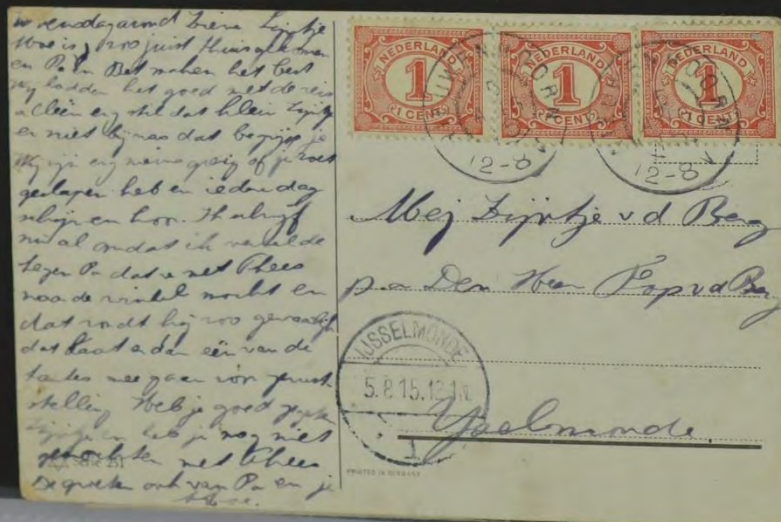 woensdagavond Lieve Zijntje
Moe is zoo juist thuis gekomen
en Pa. Bet maken het best
wij hadden het goed met de reis
alleen erg stil dat klein Zijntje
er niet bij was dat begrijp je
Wij zijn erg nieuwsgierig of je zoet
geslapen heb en iederen dag
schrijven hoor. Ik schrijf
nu al omdat ik vertelde
tegen Pa dat u met Thees
naar de winkel mocht en
dat vondt hij zoo gevaarlijk
dat laat er dan een van de
tantes mee gaan voor gerust-
stelling Heb je goed
Zijntje en heb je nog niet
gevochten met Thees
De groeten ook van Pa en je
Moe.
NEDERLAND
1
1 CENT
NEDERLAND
1
1 CENT
NEDERLAND
1
1 CENT
12-8
12-8
Mej Zijntje v d Berg
p.a Den Heer v d Berg
IJSSELMONDE
5.8.15.12-1N
1
Yselmonde
PRINTED IN GERMANY